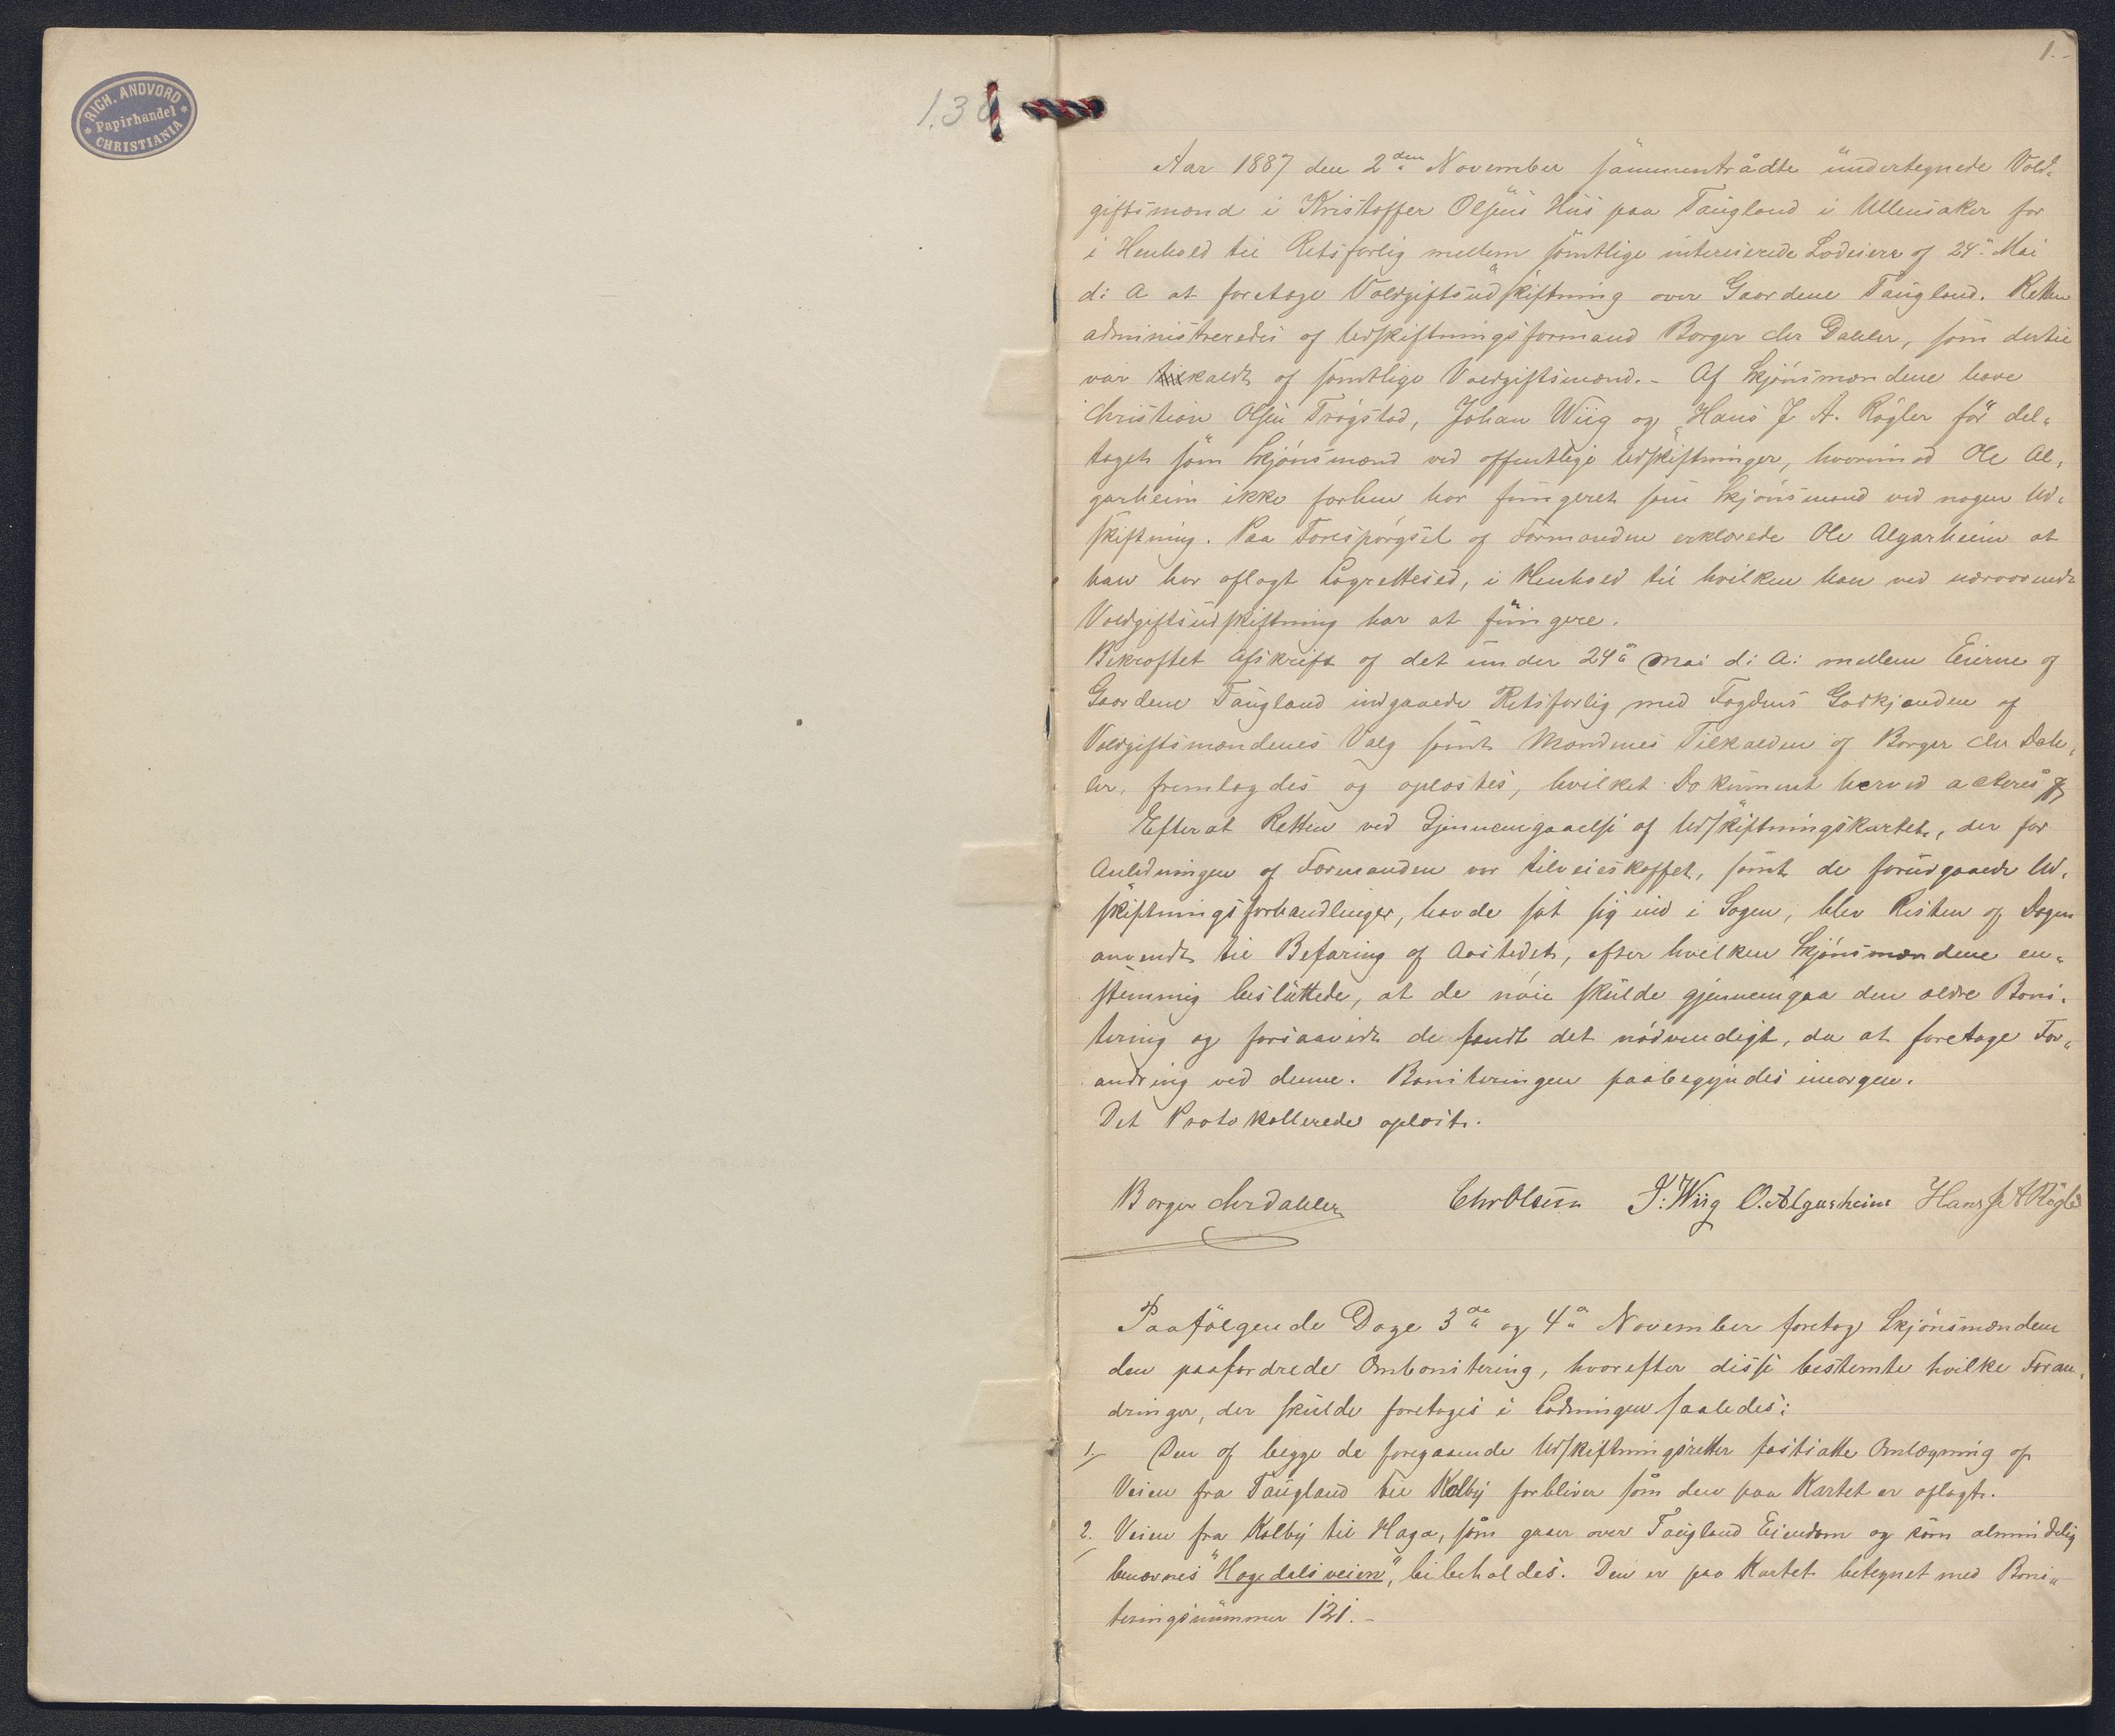 RICH. ANDVORD
Papirhandel
CHRISTIANIA
1.30
1.-
Aar 1887 den 2den November sammentrådte undertegnede Vold-
giftsmænd i Kristoffer Olsens Hus paa Taugland i Ullensaker for
i Henhold til Retsforlig mellem samtlige interiserede Lodeiere af 24. Mai
d: A at foretage Voldgiftsudskiftning over Gaardene Taugland. Retten
administreredes af Udskiftningsformand Borger Chr Dahler, som dertil
var tilkaldt af samtlige Voldgiftsmænd. - Af Skjønsmændene have
Christian Olsen Trøgstad, Johan Wiig og Hans J A. Røgler før del-
taget som Skjønsmænd ved offentlige Udskiftninger, hvorimod Ole Al-
garheim ikke forhen har fungeret som Skjønsmand ved nogen Ud-
skiftning. Paa Forespørgsel af Formanden erklærede Ole Algarheim at
han har aflagt Lagrettesed, i Henhold til hvilken han ved nærværende
Voldgiftsudskiftning har at fungere.
Bekræftet Afskrift af det under 24 Mai d: A: mellem Eierne af
Gaardene Taugland indgaaede Retsforlig med Fogdens Godkjenden af
Voldgiftsmændenes Valg samt Mændenes Tilkalden af Borger Chr Dah-
ler, fremlagdes og oplæstes, hvilket Dokument herved acteres
Efterat Retten ved Gjennemgaaelse af Udskiftningskartet, der for
Anledningen af Formanden var tilveieskaffet, samt de forudgaaede Ud-
skiftningsforhandlinger, havde sat sig ind i Sagen, blev Resten af Dagen
anvendt til Befaring af Aastedet, efter hvilken Skjønsmændene en-
stemmig besluttede, at de nøie skulde gjennemgaa den ældre Boni-
tering og forsaavidt de fandt det nødvendigt, da at foretage For-
andring ved denne. Boniteringen paabegyndes imorgen.
Det Protokollerede oplæst.
Borger Chr Dahler Chr Olsen J. Wiig O. Algarheim Hans J A Røgler
Paafølgende Dage 3de og 4 November foretog Skjønsmændene
den paafordrede Ombonitering, hvorefter disse bestemte hvilke Foran-
dringer, der skulde foretages i Lodningen saaledes:
1. Den af begge de foregaaende Udskiftningsretter fastsatte Omlægning af
Veien fra Taugland til Kolby forbliver som den paa Kartet er aflagt.
2. Veien fra Kolby til Haga, som gaaer over Taugland Eiendom og som almindelig
benævnes "Hagedalsveien", bibeholdes. Den er paa Kartet betegnet med Boni-
teringsnummer 121. -